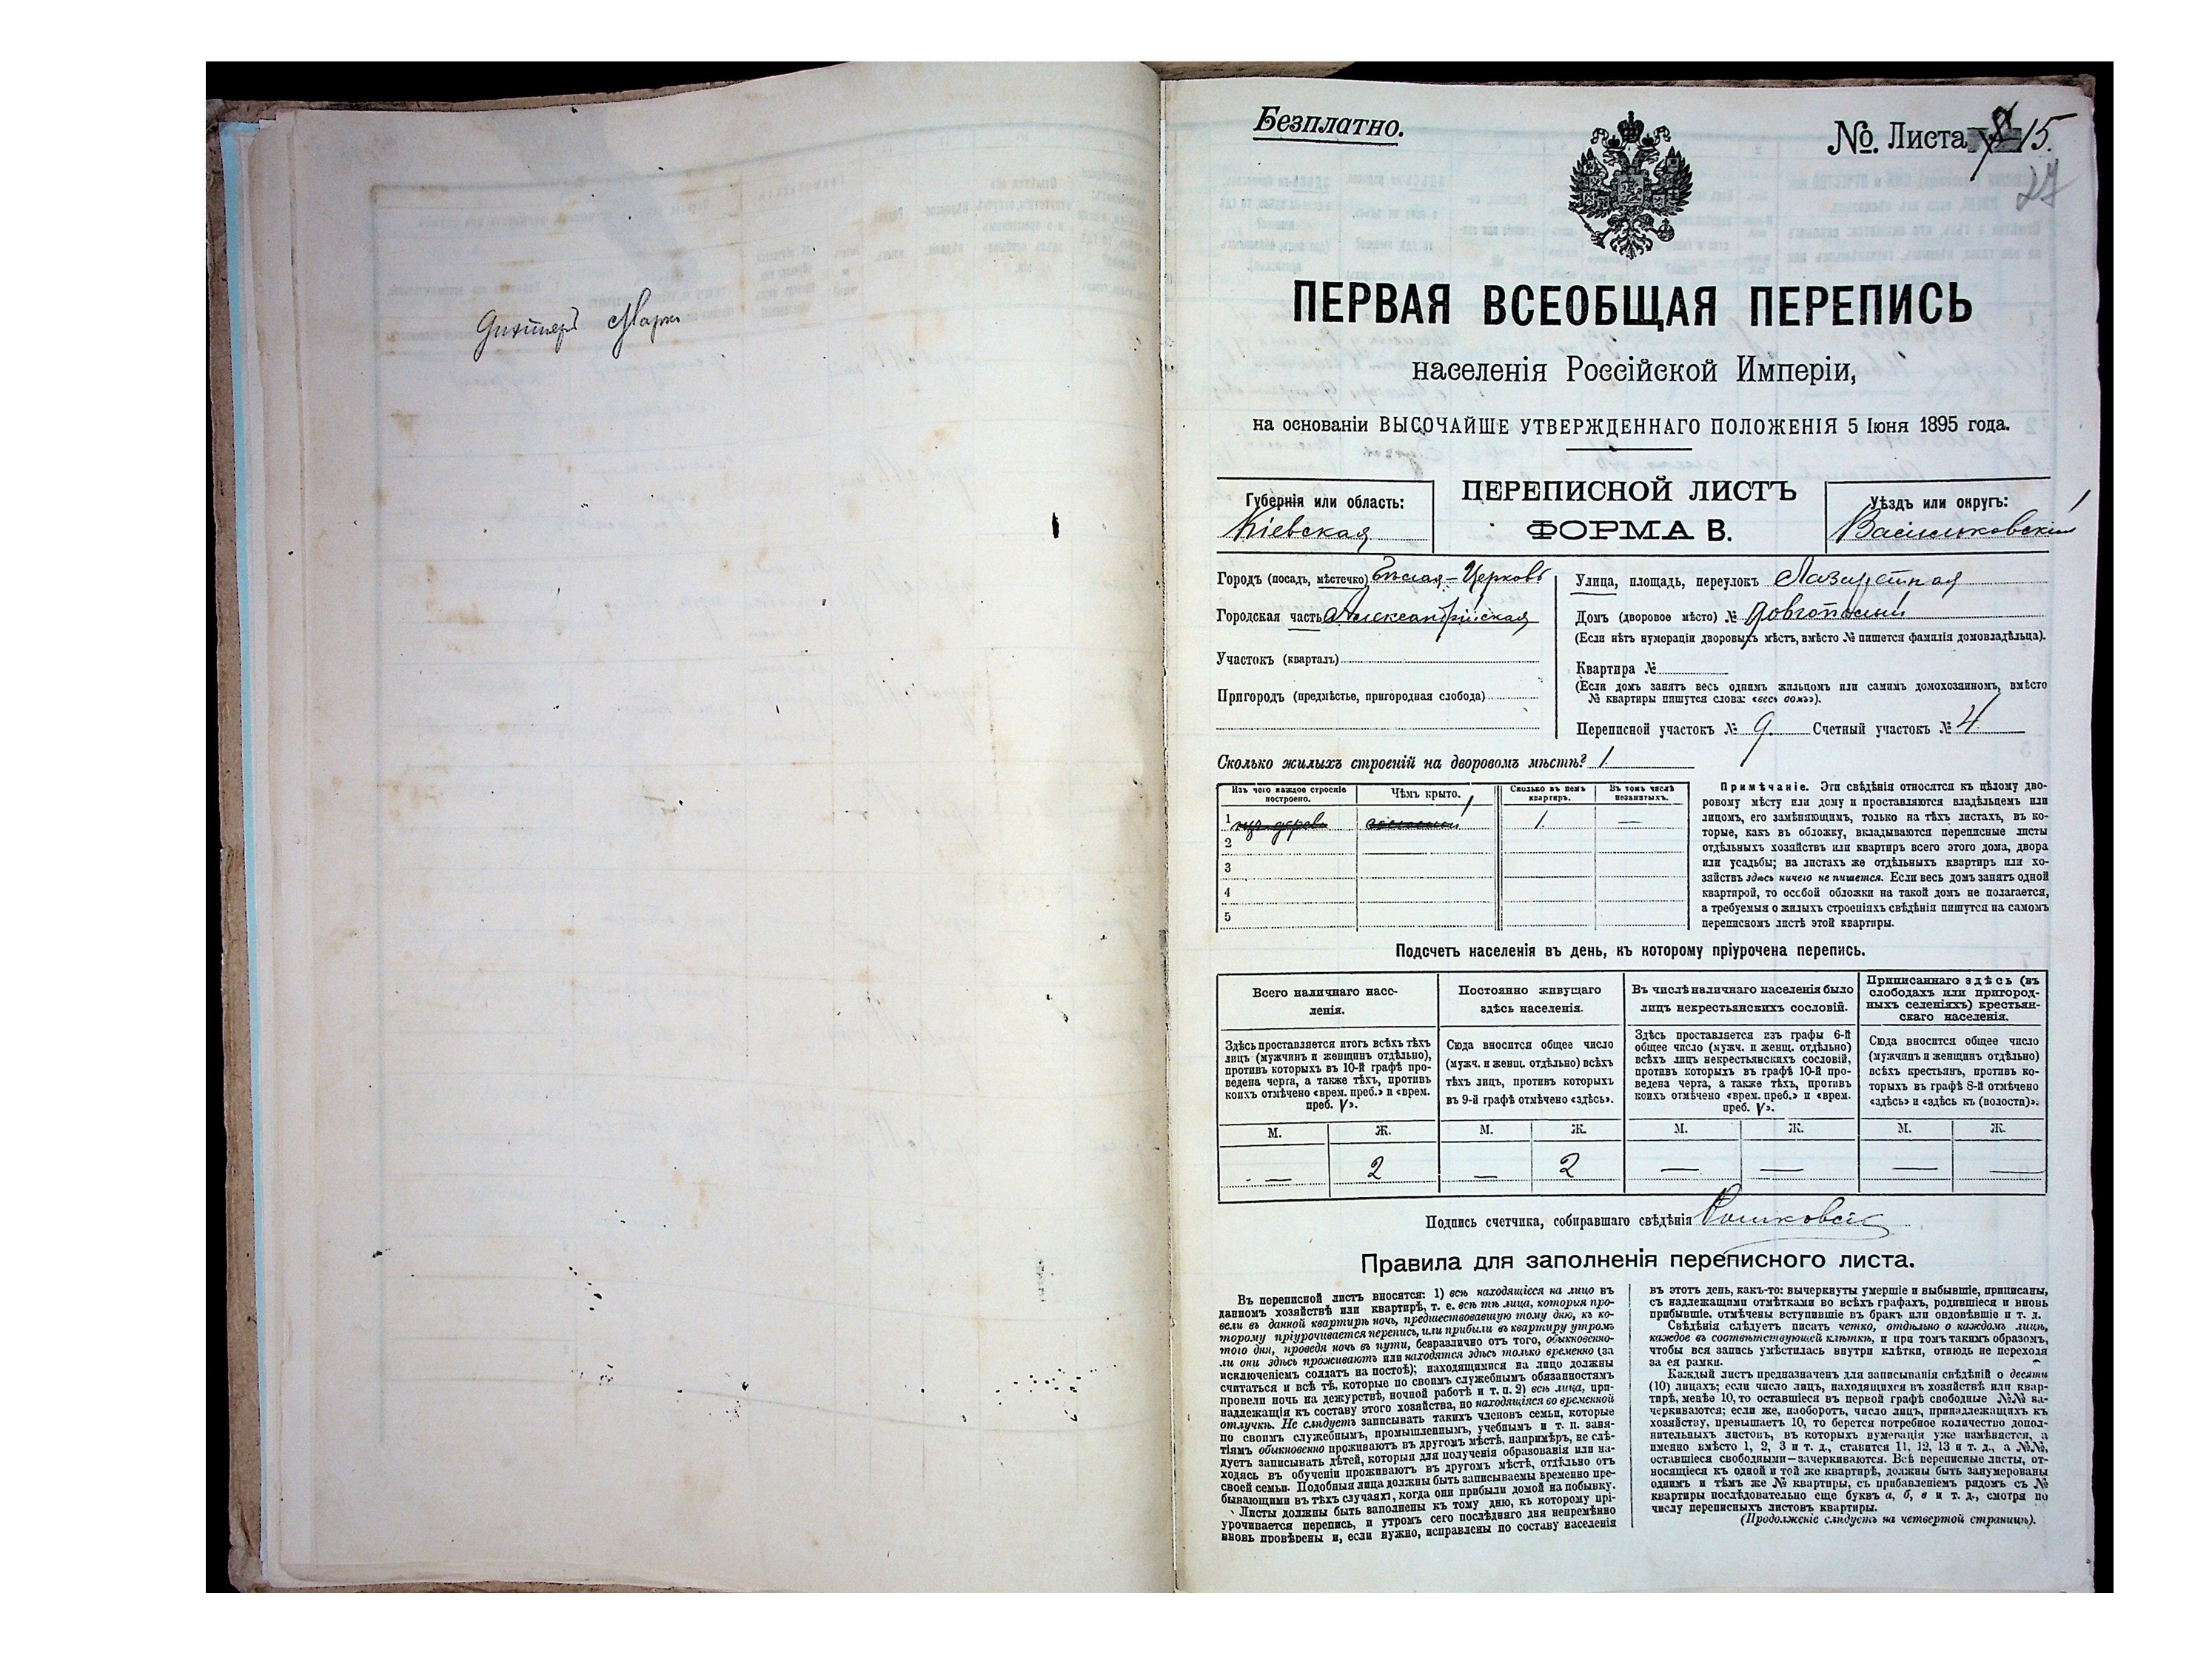 Безплатно.
№. Листа 15.
27
ПЕРВАЯ ВСЕОБЩАЯ ПЕРЕПИСЬ
населенія Россійской Имперіи,
на основаніи ВЫСОЧАЙШЕ УТВЕРЖДЕННАГО ПОЛОЖЕНІЯ 5 Іюня 1895 года.
Губернія или область:
Кіевская
ПЕРЕПИСНОЙ ЛИСТЪ
ФОРМА В.
Уѣздъ или округъ:
Васильковскій
Городъ (посадъ, мѣстечко) Бѣлая-Церковь
Городская часть Александрійская
Участокъ (кварталъ)
Пригородъ (предмѣстье, пригородная слобода)
Улица, площадь, переулокъ Лазаретная
Домъ (дворовое мѣсто) № Довгополый
(Если нѣтъ нумераціи дворовыхъ мѣстъ, вмѣсто № пишется фамилія домовладѣльца).
Квартира №
(Если домъ занятъ весь однимъ жильцомъ или самимъ домохозяиномъ, вмѣсто
№ квартиры пишутся слова: «весь домъ»).
Переписной участокъ № 9. Счетный участокъ № 4
Сколько жилыхъ строеній на дворовомъ мѣстѣ? 1
Изъ чего каждое строеніе
построено.
Чѣмъ крыто.
Сколько въ немъ
квартиръ.
Въ томъ числѣ
незанятыхъ.
1 изъ дерева 1. —
2
3
4
5
Примѣчаніе. Эти свѣдѣнія относятся къ цѣлому дво-
ровому мѣсту или дому и проставляются владѣльцемъ или
лицомъ, его замѣняющимъ, только на тѣхъ листахъ, въ ко-
торые, какъ въ обложку, вкладываются переписные листы
отдѣльныхъ хозяйствъ или квартиръ всего этого дома, двора
или усадьбы; на листахъ же отдѣльныхъ квартиръ или хо-
зяйствъ здѣсь ничего не пишется. Если весь домъ занятъ одной
квартирой, то особой обложки на такой домъ не полагается,
а требуемыя о жилыхъ строеніяхъ свѣдѣнія пишутся на самомъ
переписномъ листѣ этой квартиры.
Подсчетъ населенія въ день, къ которому пріурочена перепись.
Всего наличнаго насе-
ленія.
Здѣсь проставляется итогъ всѣхъ тѣхъ
лицъ (мужчинъ и женщинъ отдѣльно),
противъ которыхъ въ 10-й графѣ про-
ведена черта, а также тѣхъ, противъ
коихъ отмѣчено «врем. преб.» и «врем.
преб. V».
Постоянно живущаго
здѣсь населенія.
Сюда вносится общее число
(мужч. и женщ. отдѣльно) всѣхъ
тѣхъ лицъ, противъ которыхъ
въ 9-й графѣ отмѣчено «здѣсь».
Въ числѣ наличнаго населенія было
лицъ некрестьянскихъ сословій.
Здѣсь проставляется изъ графы 6-й
общее число (мужч. и женщ. отдѣльно)
всѣхъ лицъ некрестьянскихъ сословій,
противъ которыхъ въ графѣ 10-й про-
ведена черта, а также тѣхъ, противъ
коихъ отмѣчено «врем. преб.» и «врем.
преб. V».
Приписаннаго здѣсь (въ
слободахъ или пригород-
ныхъ селеніяхъ) крестьян-
скаго населенія.
Сюда вносится общее число
(мужчинъ и женщинъ отдѣльно)
всѣхъ крестьянъ, противъ ко-
торыхъ въ графѣ 8-й отмѣчено
«здѣсь» и «здѣсь къ (волости)».
М. Ж. М. Ж. М. Ж. М. Ж.
— 2 — 2 — — — —
Подпись счетчика, собиравшаго свѣдѣнія
Правила для заполненія переписного листа.
Въ переписной листъ вносятся: 1) всѣ находящіеся на лицо въ
данномъ хозяйствѣ или квартирѣ, т. е. всѣ тѣ лица, которыя про-
вели въ данной квартирѣ ночь, предшествовавшую тому дню, къ ко-
торому пріурочивается перепись, или прибыли въ квартиру утромъ
того дня, проведя ночь въ пути, безразлично отъ того, обыкновенно-
ли они здѣсь проживаютъ или находятся здѣсь только временно (за
исключеніемъ солдатъ на постоѣ); находящимися на лицо должны
считаться и всѣ тѣ, которые по своимъ служебнымъ обязанностямъ
провели ночь на дежурствѣ, ночной работѣ и т. п. 2) всѣ лица, при-
надлежащія къ составу этого хозяйства, но находящіяся во временной
отлучкѣ. Не слѣдуетъ записывать такихъ членовъ семьи, которые
по своимъ служебнымъ, промышленнымъ, учебнымъ и т. п. заня-
тіямъ обыкновенно проживаютъ въ другомъ мѣстѣ, напримѣръ, не слѣ-
дуетъ записывать дѣтей, которыя для полученія образованія или на-
ходясь въ обученіи проживаютъ въ другомъ мѣстѣ, отдѣльно отъ
своей семьи. Подобныя лица должны быть записываемы временно пре-
бывающими въ тѣхъ случаяхъ, когда они прибыли домой на побывку.
Листы должны быть заполнены къ тому дню, къ которому прі-
урочивается перепись, и утромъ сего послѣдняго дня непремѣнно
вновь провѣрены и, если нужно, исправлены по составу населенія
въ этотъ день, какъ-то: вычеркнуты умершіе и выбывшіе, приписаны,
съ надлежащими отмѣтками во всѣхъ графахъ, родившіеся и вновь
прибывшіе, отмѣчены вступившіе въ бракъ или овдовѣвшіе и т. д.
Свѣдѣнія слѣдуетъ писать четко, отдѣльно о каждомъ лицѣ,
каждое въ соотвѣтствующей клѣткѣ, и при томъ такимъ образомъ,
чтобы вся запись умѣстилась внутри клѣтки, отнюдь не переходя
за ея рамки.
Каждый листъ предназначенъ для записыванія свѣдѣній о десяти
(10) лицахъ; если число лицъ, находящихся въ хозяйствѣ или квар-
тирѣ, менѣе 10, то оставшіеся въ первой графѣ свободные №№ за-
черкиваются; если же, наоборотъ, число лицъ, принадлежащихъ къ
хозяйству, превышаетъ 10, то берется потребное количество допол-
нительныхъ листовъ, въ которыхъ нумерація уже измѣняется, а
именно вмѣсто 1, 2, 3 и т. д., ставится 11, 12, 13 и т. д., а №№,
оставшіеся свободными—зачеркиваются. Всѣ переписные листы, от-
носящіеся къ одной и той же квартирѣ, должны быть занумерованы
однимъ и тѣмъ же № квартиры, съ прибавленіемъ рядомъ съ №
квартиры послѣдовательно еще буквъ а, б, в и т. д., смотря по
числу переписныхъ листовъ квартиры.
(Продолженіе слѣдуетъ на четвертой страницѣ).